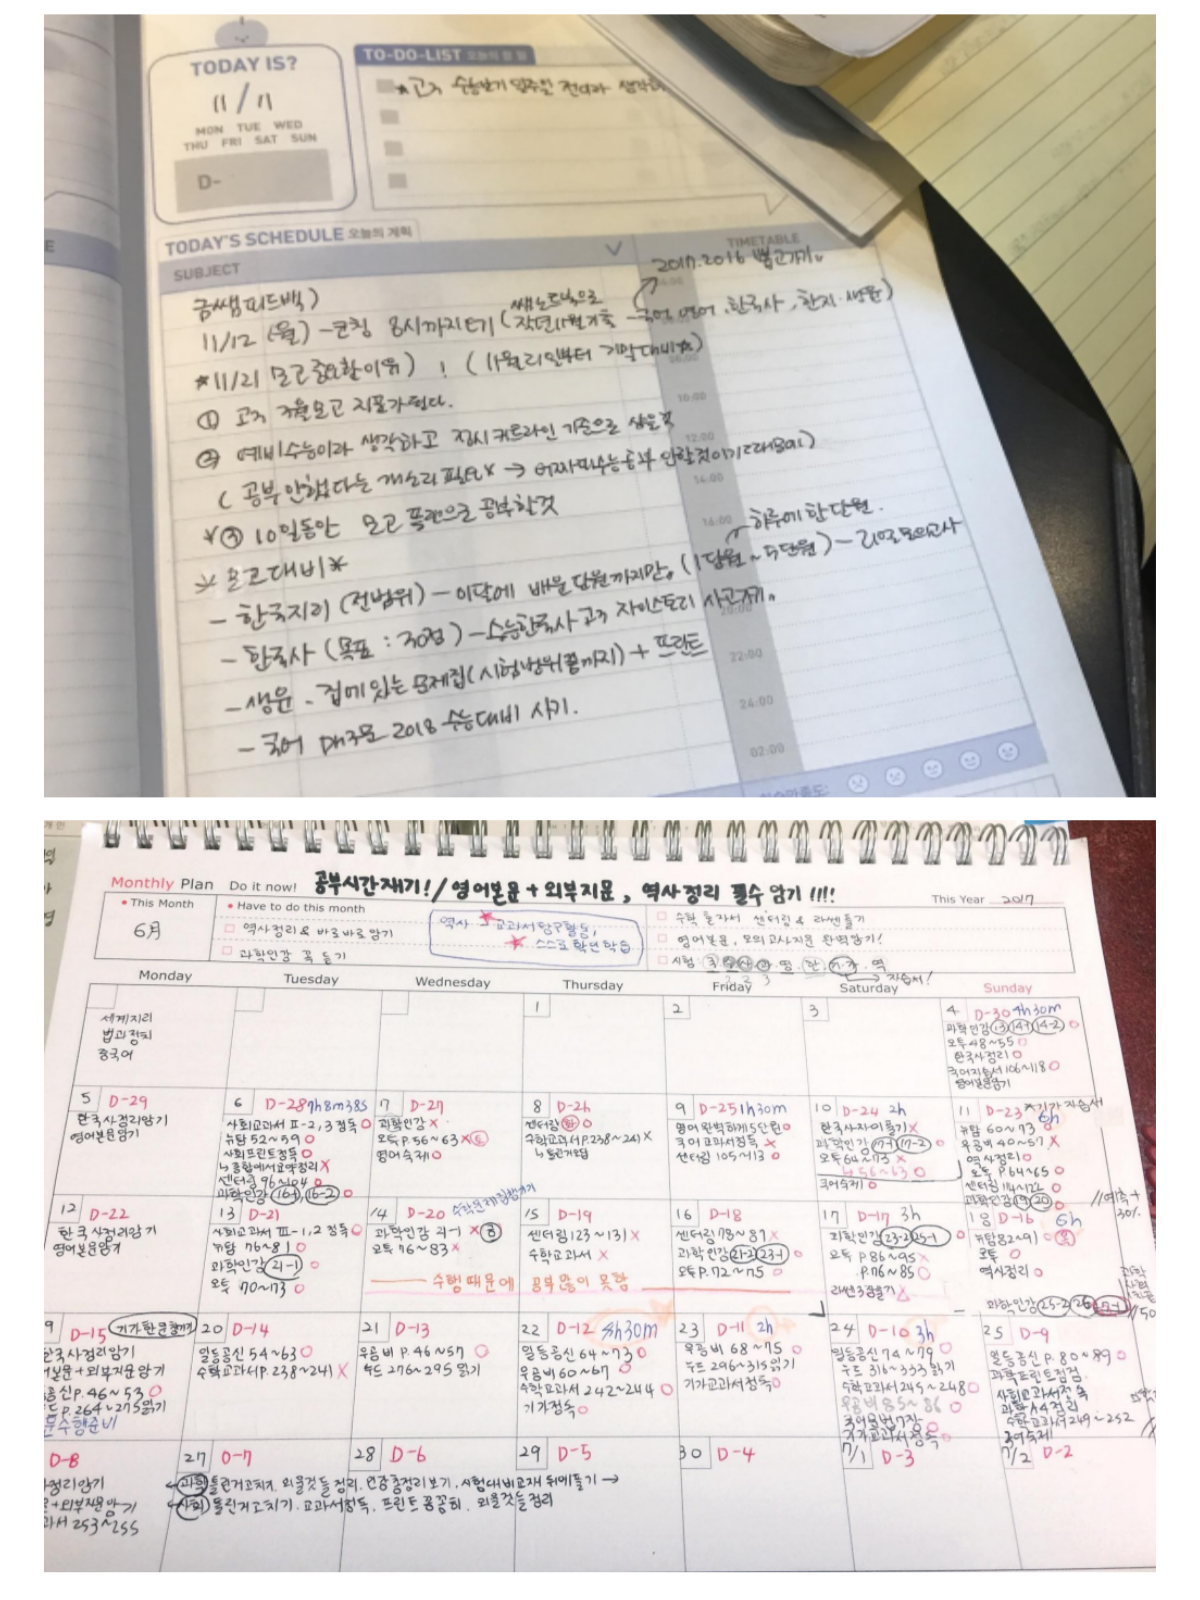 TODAY IS?
11/11
MON TUE WED
THU FRI SAT SUN
D-
TO-DO-LIST 오늘의 할 일
TODAY'S SCHEDULE 오늘의 계획
SUBJECT
TIMETABLE
2017.2016 뽑고가기
금쌤피드백)
11/12 (월) - 코칭 8시까지 (작년11월기출 - 국어, 영어, 한국사, 한지, 생윤)
*11/21 모고 중요한이유) ! (11월21일부터 기말대비)
① 고3 3월모고 지표가된다.
② 예비수능이라 생각하고 정시커트라인 기준으로 삼을것
③ 10일동안 모고 플랜으로 공부할것
하루에 한단원.
*모고대비*
- 한국지리 (전범위) - 이달에 배운 단원까지만. (1단원~5단원) - 모의고사
- 한국사 (목표 : 30점) - 수능한국사 고3 자이스토리 사고가기.
- 생윤 - 집에있는 문제집(시험범위까지) + 프린트
- 국어 2018 수능대비 사기.
10:00
12:00
14:00
16:00
20:00
22:00
24:00
02:00
Monthly Plan Do it now! 공부시간재기! / 영어본문 + 외부지문, 역사정리 필수 암기 !!!!
This Year 2017
This Month
6月
Have to do this month
역사정리 & 바로바로암기
과학인강 꼭 듣기
역사 → 교과서탐구활동,
스스로 확인학습
수학 교과서 센터링 & 라쎈듣기
영어본문, 모의고사지문 완벽암기!
자습서!
Monday Tuesday Wednesday Thursday Friday Saturday Sunday
세계지리
법과정치
중국어
1
2
3
4 D-30 4h30m
과학인강 13 14-1 14-2 O
오투 48~55 O
한국사정리 O
국어자습서 106~118 O
영어본문암기
5 D-29
한국사정리암기
영어본문암기
6 D-28 7h8m38s
사회교과서 Ⅱ-2,3 정독 O
뉴탐 52~59 O
사회프린트정독 O
센터링 96~104 O
과학인강 16-1 16-2 O
7 D-27
과학인강 X
오투 P.56~63 X
영어숙제 O
8 D-26
센터링 O
수학교과서 P.238~241 X
틀린거오답
9 D-25 1h30m
영어 완벽하게 5단원 O
국어교과서정독 X
센터링 105~113 O
10 D-24 2h
한국사자이풀기 X
과학인강 17-1 17-2 O
오투 64~73 X
56~63 O
국어숙제 O
11 D-23 6h
*기가 자습서
뉴탐 60~73 O
우공비 40~57 X
역사정리 O
오투 P64~65 O
센터링 114~122 O
과학인강 19 20 O
12 D-22
한국사정리암기
영어본문암기
13 D-21
사회교과서 Ⅲ-1,2 정독 O
뉴탐 76~81 O
과학인강 21-1 O
오투 70~73 O
14 D-20
과학인강 21-1 X
오투 76~83 X
수행 때문에 공부 많이 못함
15 D-19
센터링 123~131 X
수학교과서 X
16 D-18
센터링 79~87 X
과학인강 21-2 23-1 O
오투 P.72~75 O
17 D-17 3h
과학인강 23-2 25-1 O
오투 P86~95 X
P.76~85 O
18 D-16 6h
뉴탐 82~91 O
오투 O
역사정리 O
과학인강 25-2 26 27-1
D-15
한국사정리암기
본문+외부지문암기
P.46~53 O
P.264~275 읽기
수행준비
20 D-14
일등공신 54~63 O
수학교과서 P.238~241 X
21 D-13
우공비 P.46~57 O
수드 276~295 읽기
22 D-12 5h30m
일등공신 64~73 O
우공비 60~67 O
수학교과서 242~244 O
기가정독 O
23 D-11 2h
우공비 68~75 O
수드 296~315 읽기
기가교과서정독 O
24 D-10 3h
일등공신 74~79 O
수드 316~333 읽기
수학교과서 245~248 O
우공비 85~86 O
국어문법 7장 O
기가교과서정독 O
25 D-9
일등공신 P.80~89 O
과학프린트점검
사회교과서정독
과학A4정리
수학교과서 249~252
국어숙제
D-8
정리암기
+외부지문암기
과서 253~255
27 D-7
과학 틀린거고치기, 외울것들 정리, 인강 총정리보기, 시험대비교재 뒤에풀기 →
사회 틀린거고치기, 교과서정독, 프린트 꼼꼼히, 외울것들정리
28 D-6
29 D-5
30 D-4
7/1 D-3
7/2 D-2